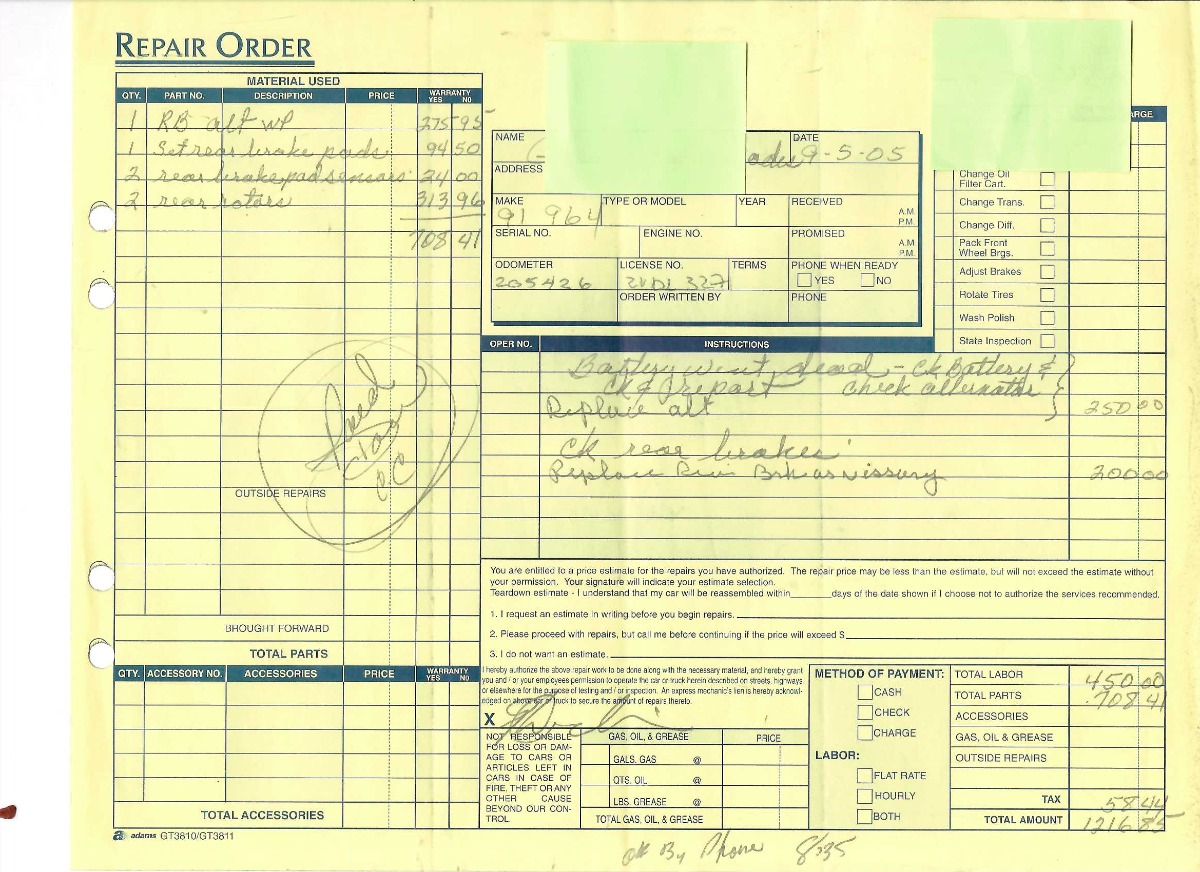 REPAIR ORDER
MATERIAL USED
QTY. PART NO. DESCRIPTION PRICE WARRANTY YES NO
1 RB alt WP 275 95
1 Set rear brake pads 94 50
2 rear brake pad sensors 24 00
2 rear rotors 313 96
708 41
Paid
OUTSIDE REPAIRS
BROUGHT FORWARD
TOTAL PARTS
QTY. ACCESSORY NO. ACCESSORIES PRICE WARRANTY YES NO
TOTAL ACCESSORIES
adams GT3810/GT3811
NAME
DATE
9-5-05
ADDRESS
MAKE TYPE OR MODEL YEAR RECEIVED A.M. P.M.
91 964
SERIAL NO. ENGINE NO. PROMISED A.M. P.M.
ODOMETER LICENSE NO. TERMS PHONE WHEN READY
YES NO
205426 2VDL 327
ORDER WRITTEN BY PHONE
ARGE
Change Oil
Filter Cart.
Change Trans.
Change Diff.
Pack Front
Wheel Brgs.
Adjust Brakes
Rotate Tires
Wash Polish
State Inspection
OPER NO. INSTRUCTIONS
Battery went dead - CK Battery &
CK & report check alternator
Replace alt 250 00
CK rear brakes
Replace Brk as nissary 200 00
You are entitled to a price estimate for the repairs you have authorized. The repair price may be less than the estimate, but will not exceed the estimate without
your permission. Your signature will indicate your estimate selection.
Teardown estimate - I understand that my car will be reassembled within days of the date shown if I choose not to authorize the services recommended.
1. I request an estimate in writing before you begin repairs.
2. Please proceed with repairs, but call me before continuing if the price will exceed $
3. I do not want an estimate.
I hereby authorize the above repair work to be done along with the necessary material, and hereby grant
you and / or your employees permission to operate the car or truck herein described on streets, highways
or elsewhere for the purpose of testing and / or inspection. An express mechanic's lien is hereby acknowl-
edged on above car or truck to secure the amount of repairs thereto.
X
NOT RESPONSIBLE
FOR LOSS OR DAM-
AGE TO CARS OR
ARTICLES LEFT IN
CARS IN CASE OF
FIRE, THEFT OR ANY
OTHER CAUSE
BEYOND OUR CON-
TROL.
GAS, OIL, & GREASE PRICE
GALS. GAS @
QTS. OIL @
LBS. GREASE @
TOTAL GAS, OIL, & GREASE
METHOD OF PAYMENT:
CASH
CHECK
CHARGE
LABOR:
FLAT RATE
HOURLY
BOTH
TOTAL LABOR 450.00
TOTAL PARTS 708 41
ACCESSORIES
GAS, OIL & GREASE
OUTSIDE REPAIRS
TAX 58.44
TOTAL AMOUNT 1216 85
OK By Phone 8:35